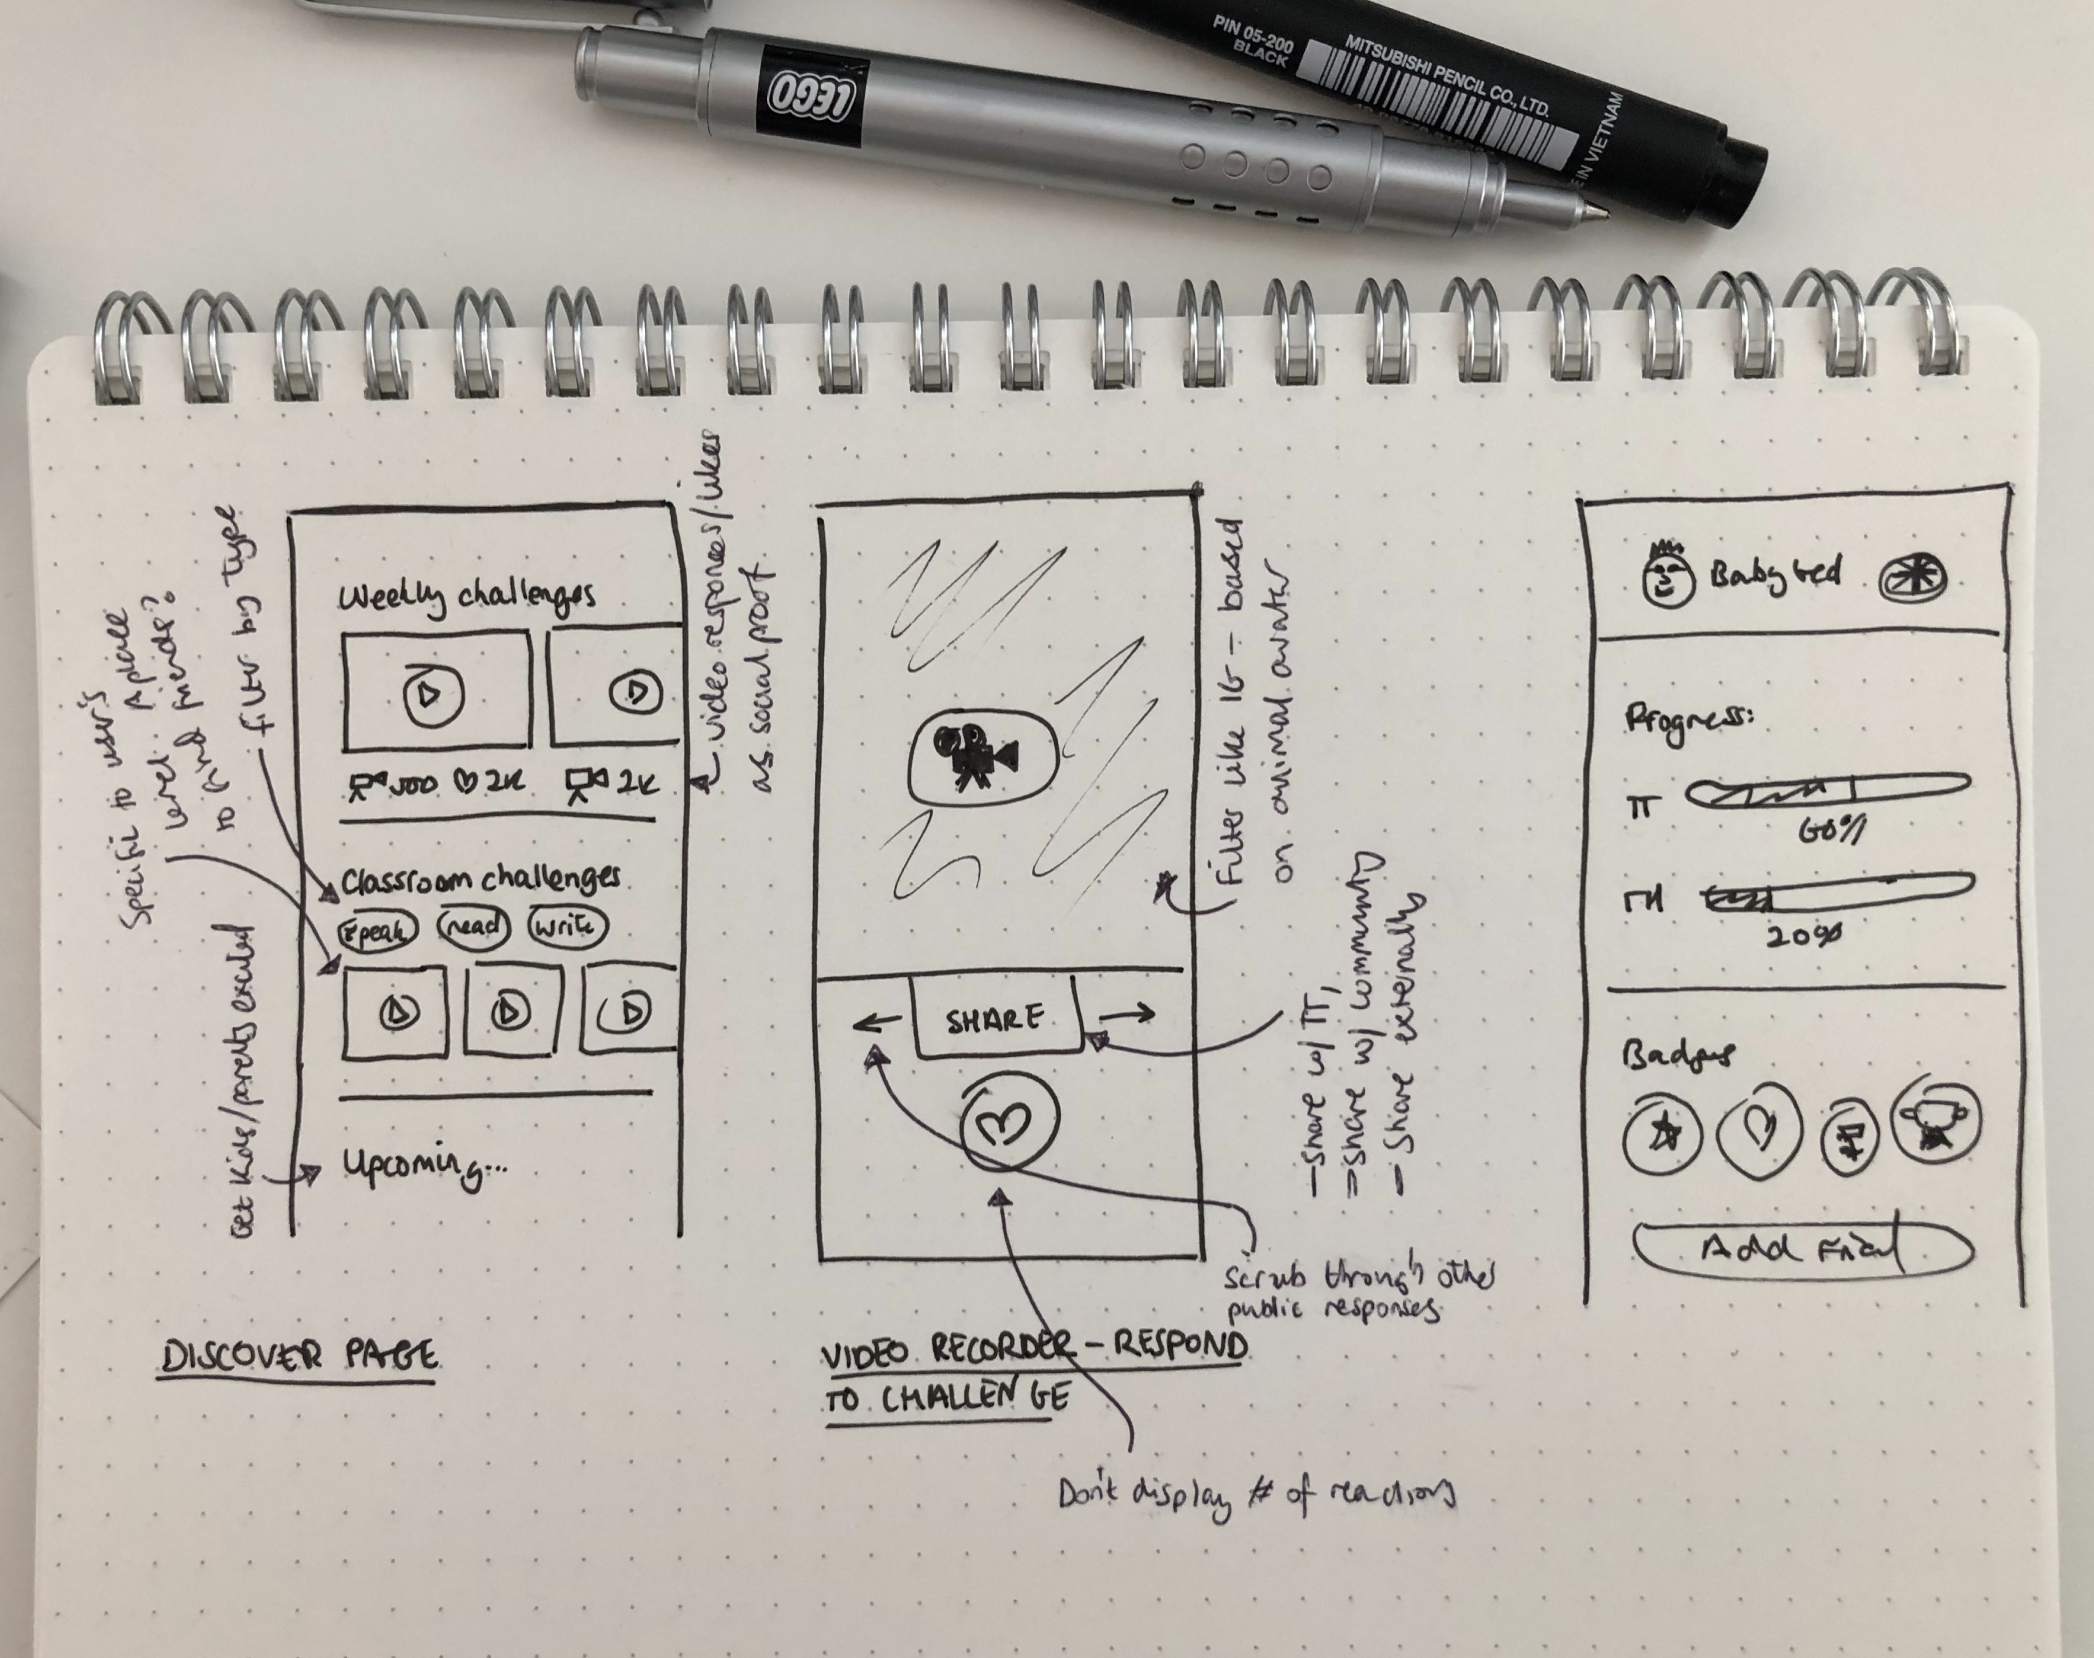 LEGO
PIN 05-200
BLACK
MITSUBISHI PENCIL CO., LTD.
E IN VIETNAM
Specific to user's
level. A place
to find friends?
filter by type
Get kids/parents excited
Weekly challenges
500 2K 2K
Classroom challenges
speak read write
Upcoming...
video responses/likes
as social proof
DISCOVER PAGE
SHARE
Filter like IG - based
on animal avatar
- share w/ TT,
- share w/ community
- share externally
scrub through other
public responses
VIDEO RECORDER - RESPOND
TO CHALLENGE
Don't display # of reactions
Baby Ged
Progress:
TT
60%
TH
20%
Badges
Add Friend